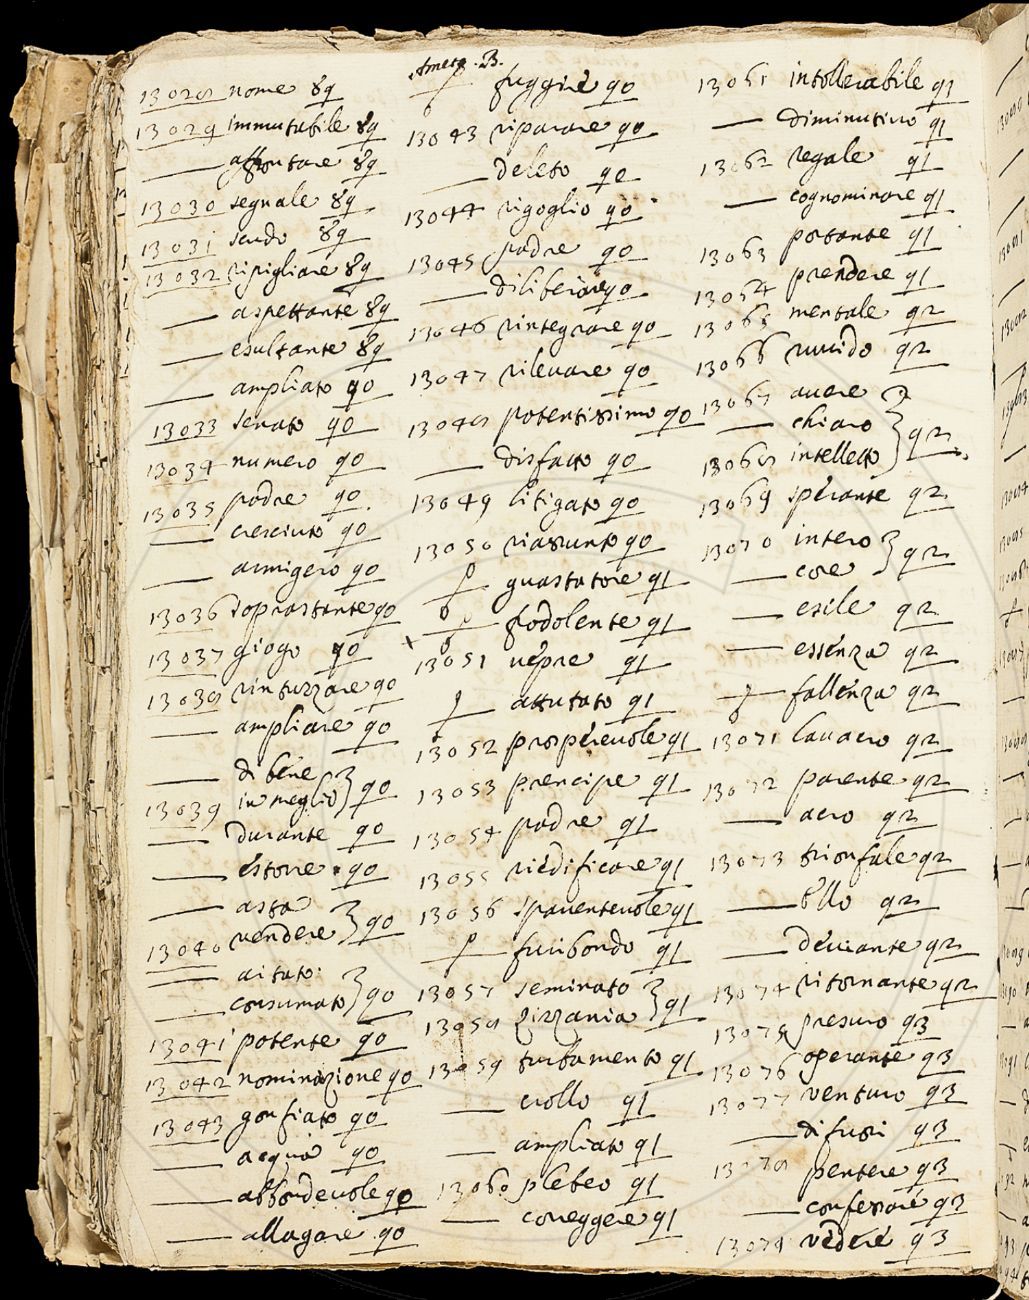 Amerg. B.
13028 nome 89
13029 immutabile 89
—— affrontare 89
13030 segnale 89
13031 scudo 89
13032 ripigliare 89
—— aspettante 89
—— esultante 89
—— ampliato 90
13033 senato 90
13034 numero 90
13035 padre 90
—— cresciuto 90
—— armigero 90
13036 soprastante 90
13037 giogo 90
13038 rintuzzare 90
—— ampliare 90
—— di bene
13039 in meglio } 90
—— durante 90
—— estorre 90
—— asta
13040 vendere } 90
—— aitato
—— consumato } 90
13041 potente 90
13042 nominazione 90
13043 gonfiato 90
—— acqua 90
—— abbondevole 90
—— allagare 90
—— fuggire 90
13043 riparare 90
—— deleto 90
13044 rigoglio 90
13045 padre 90
—— diliberare 90
13046 rintegrare 90
13047 rilevare 90
13048 potentissimo 90
—— disfatto 90
13049 litigato 90
13050 riassunto 90
—— guastatore 91
—— fodolente 91
13051 vepre 91
—— attutato 91
13052 prosperevole 91
13053 prencipe 91
13054 padre 91
13055 riedificare 91
13056 spaventevole 91
—— furibondo 91
13057 seminato
13058 zizzania } 91
13059 turbamento 91
—— crollo 91
—— ampliato 91
13060 plebeo 91
—— coreggere 91
13061 intollerabile 91
—— diminutivo 91
13062 regale 91
—— cognominare 91
13063 portante 91
13064 prendere 91
13065 mentale 92
13066 ruvido 92
13067 avere
—— chiaro
13068 intelletto } 92
13069 sperante 92
13070 intero
—— core } 92
—— esile 92
—— essenza 92
—— fallenza 92
13071 lavacro 92
13072 parente 92
—— acro 92
13073 trionfale 92
—— bello 92
—— deviante 92
13074 ritornante 92
13075 presuro 93
13076 operante 93
13077 venturo 93
—— difusi 93
13078 pentere 93
—— confessare 93
13079 vedere 93